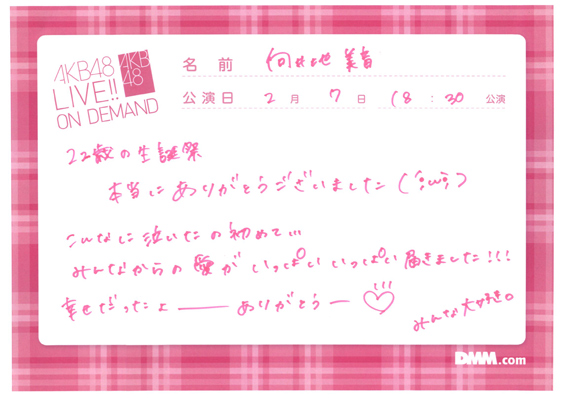 AKB48
LIVE!!
ON DEMAND
AKB
48
名前 向井地 美音
公演日 2月 7日 18:30 公演
22歳の生誕祭
本当にありがとうございました(´;ω;`)
こんなに泣いたの初めて…
みんなからの愛がいっぱいいっぱい届きました!!!
幸せだったよ――ありがとう―♡
みんな大好き。
DMM.com